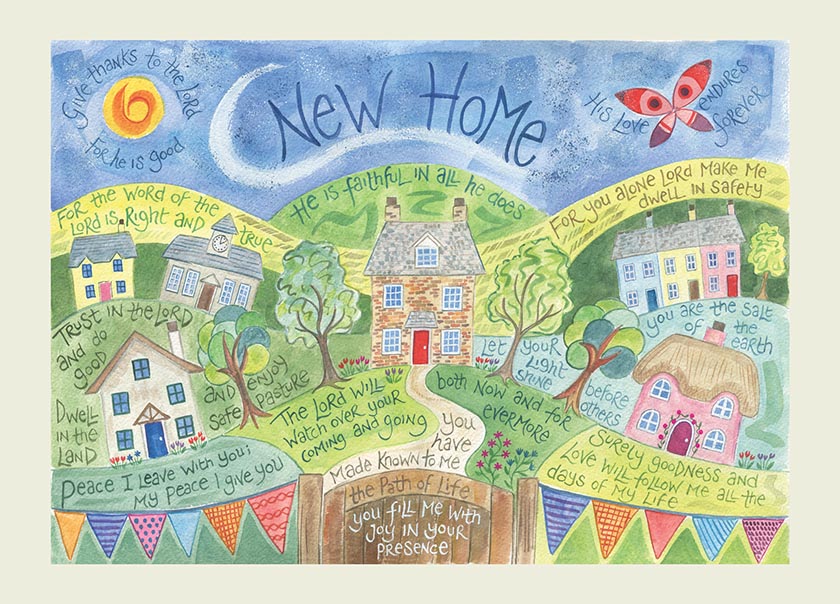 Give thanks to the Lord
for he is good
New Home
His Love endures
forever
For the word of the
Lord is right and true
He is faithful in all he does
For you alone Lord Make Me
dwell in safety
Trust in the Lord
and do
good
Dwell
in the
Land
and enjoy
safe pasture
The Lord will
watch over your
coming and going
both now and for
evermore
Let your
Light
shine
before
others
you are the salt
of the
earth
Peace I leave with you;
my peace I give you
you
have
Made Known to Me
the Path of Life
you fill Me with
Joy in your
presence
Surely goodness and
Love will follow Me all the
days of My Life